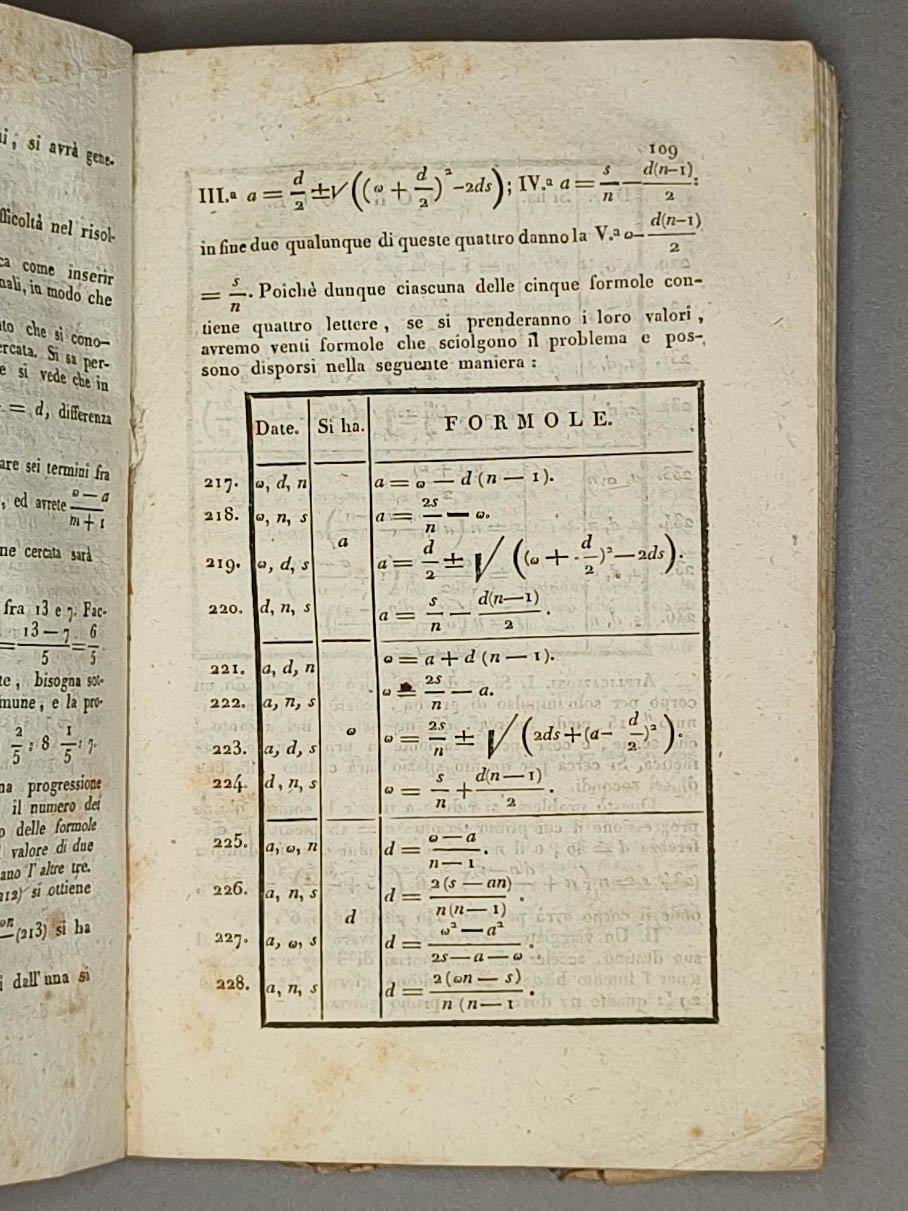 ni; si avrà gene-
fficoltà nel risol-
ca come inserir
nali, in modo che
ito che si cono-
ercata. Si sa per-
e si vede che in
= d, differenza
are sei termini fra
, ed avrete (ω — a)/(m + 1)
ne cercata sarà
fra 13 e 7. Fac-
= (13 — 7)/5 = 6/5
te, bisogna sot-
mune, e la pro-
2/5 : 8 1/5 : 7.
na progressione
il numero dei
o delle formole
l valore di due
ano l'altre tre.
212) si ottiene
ωn/ (213) si ha
i dall'una si
109
III.ª a = d/2 ± √((ω + d/2)² – 2ds); IV.ª a = s/n — d(n–1)/2 :
in fine due qualunque di queste quattro danno la V.ª ω – d(n–1)/2
= s/n. Poichè dunque ciascuna delle cinque formole con-
tiene quattro lettere, se si prenderanno i loro valori,
avremo venti formole che sciolgono il problema e pos-
sono disporsi nella seguente maniera:
Date. Si ha. FORMOLE.
217. ω, d, n a = ω — d (n — 1).
218. ω, n, s a = 2s/n — ω.
a
219. ω, d, s a = d/2 ± √((ω + d/2)² — 2ds).
220. d, n, s a = s/n — d(n—1)/2.
221. a, d, n ω = a + d (n — 1).
222. a, n, s ω = 2s/n — a.
ω
223. a, d, s ω = 2s/n ± √(2ds + (a– d/2)²).
224. d, n, s ω = s/n + d(n—1)/2.
225. a, ω, n d = (ω — a)/(n — 1).
226. a, n, s d = 2(s — an)/n(n — 1).
d
227. a, ω, s d = (ω² — a²)/(2s — a — ω).
228. a, n, s d = 2(ωn — s)/n (n — 1.